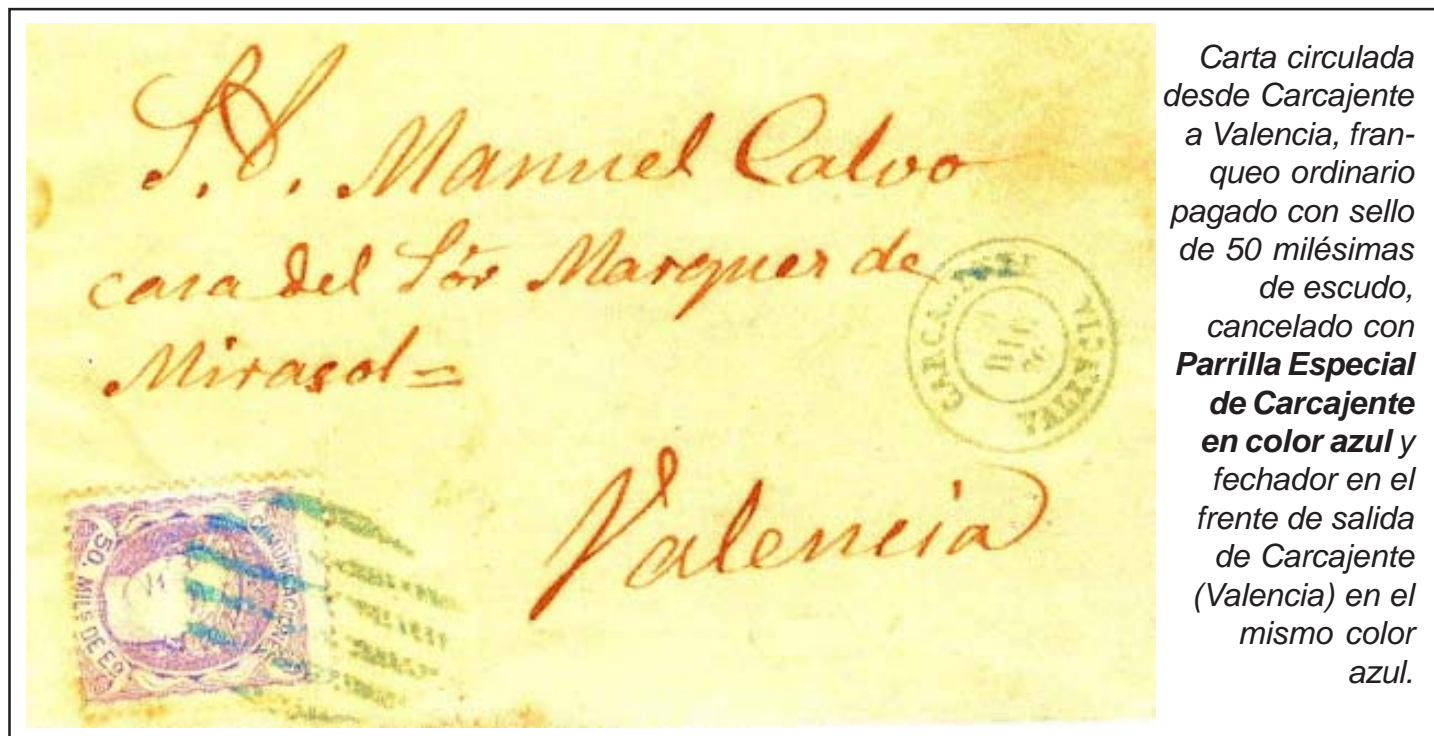 S. D. Manuel Calvo
casa del Sór Marques de
Mirasol=
Valencia
VALENCIA
COMUNICACIONES
50. MILS DE E.º
Carta circulada
desde Carcajente
a Valencia, fran-
queo ordinario
pagado con sello
de 50 milésimas
de escudo,
cancelado con
Parrilla Especial
de Carcajente
en color azul y
fechador en el
frente de salida
de Carcajente
(Valencia) en el
mismo color
azul.